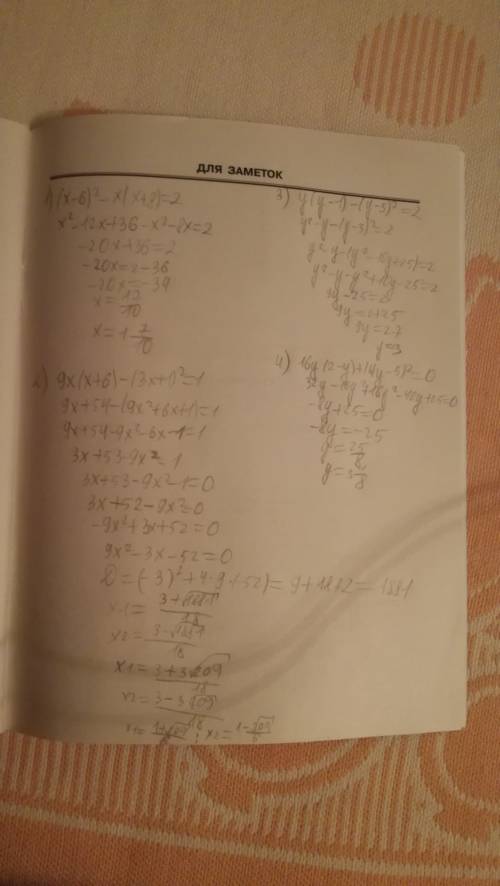 ДЛЯ ЗАМЕТОК
1) (x-6)² - x(x+8)=2
x² - 12x+36 - x² - 8x=2
-20x+36=2
-20x=2-36
-20x=-34
x=17/10
x=1 7/10
2) 9x(x+6) - (3x+1)²=1
9x+54-(9x²+6x+1)=1
9x+54-9x²-6x-1=1
3x+53-9x²=1
3x+53-9x²-1=0
3x+52-9x²=0
-9x²+3x+52=0
9x²-3x-52=0
D=(-3)²+4·9·52)=9+1872=1881
x1=(3+√1881)/18
x2=(3-√1881)/18
x1=(3+3√209)/18
x2=(3-3√209)/18
x1= ; x2=
3) y(y-1)-(y-5)²=2
y²-y-(y-5)²=2
y²-y-(y²-10y+25)=2
y²-y-y²+10y-25=2
9y-25=2
9y=2+25
9y=27
y=3
4) 16y(2-y)+(4y-5)²=0
32y-16y²+16y²-40y+25=0
-8y+25=0
-8y=-25
y=25/8
y=3 1/8